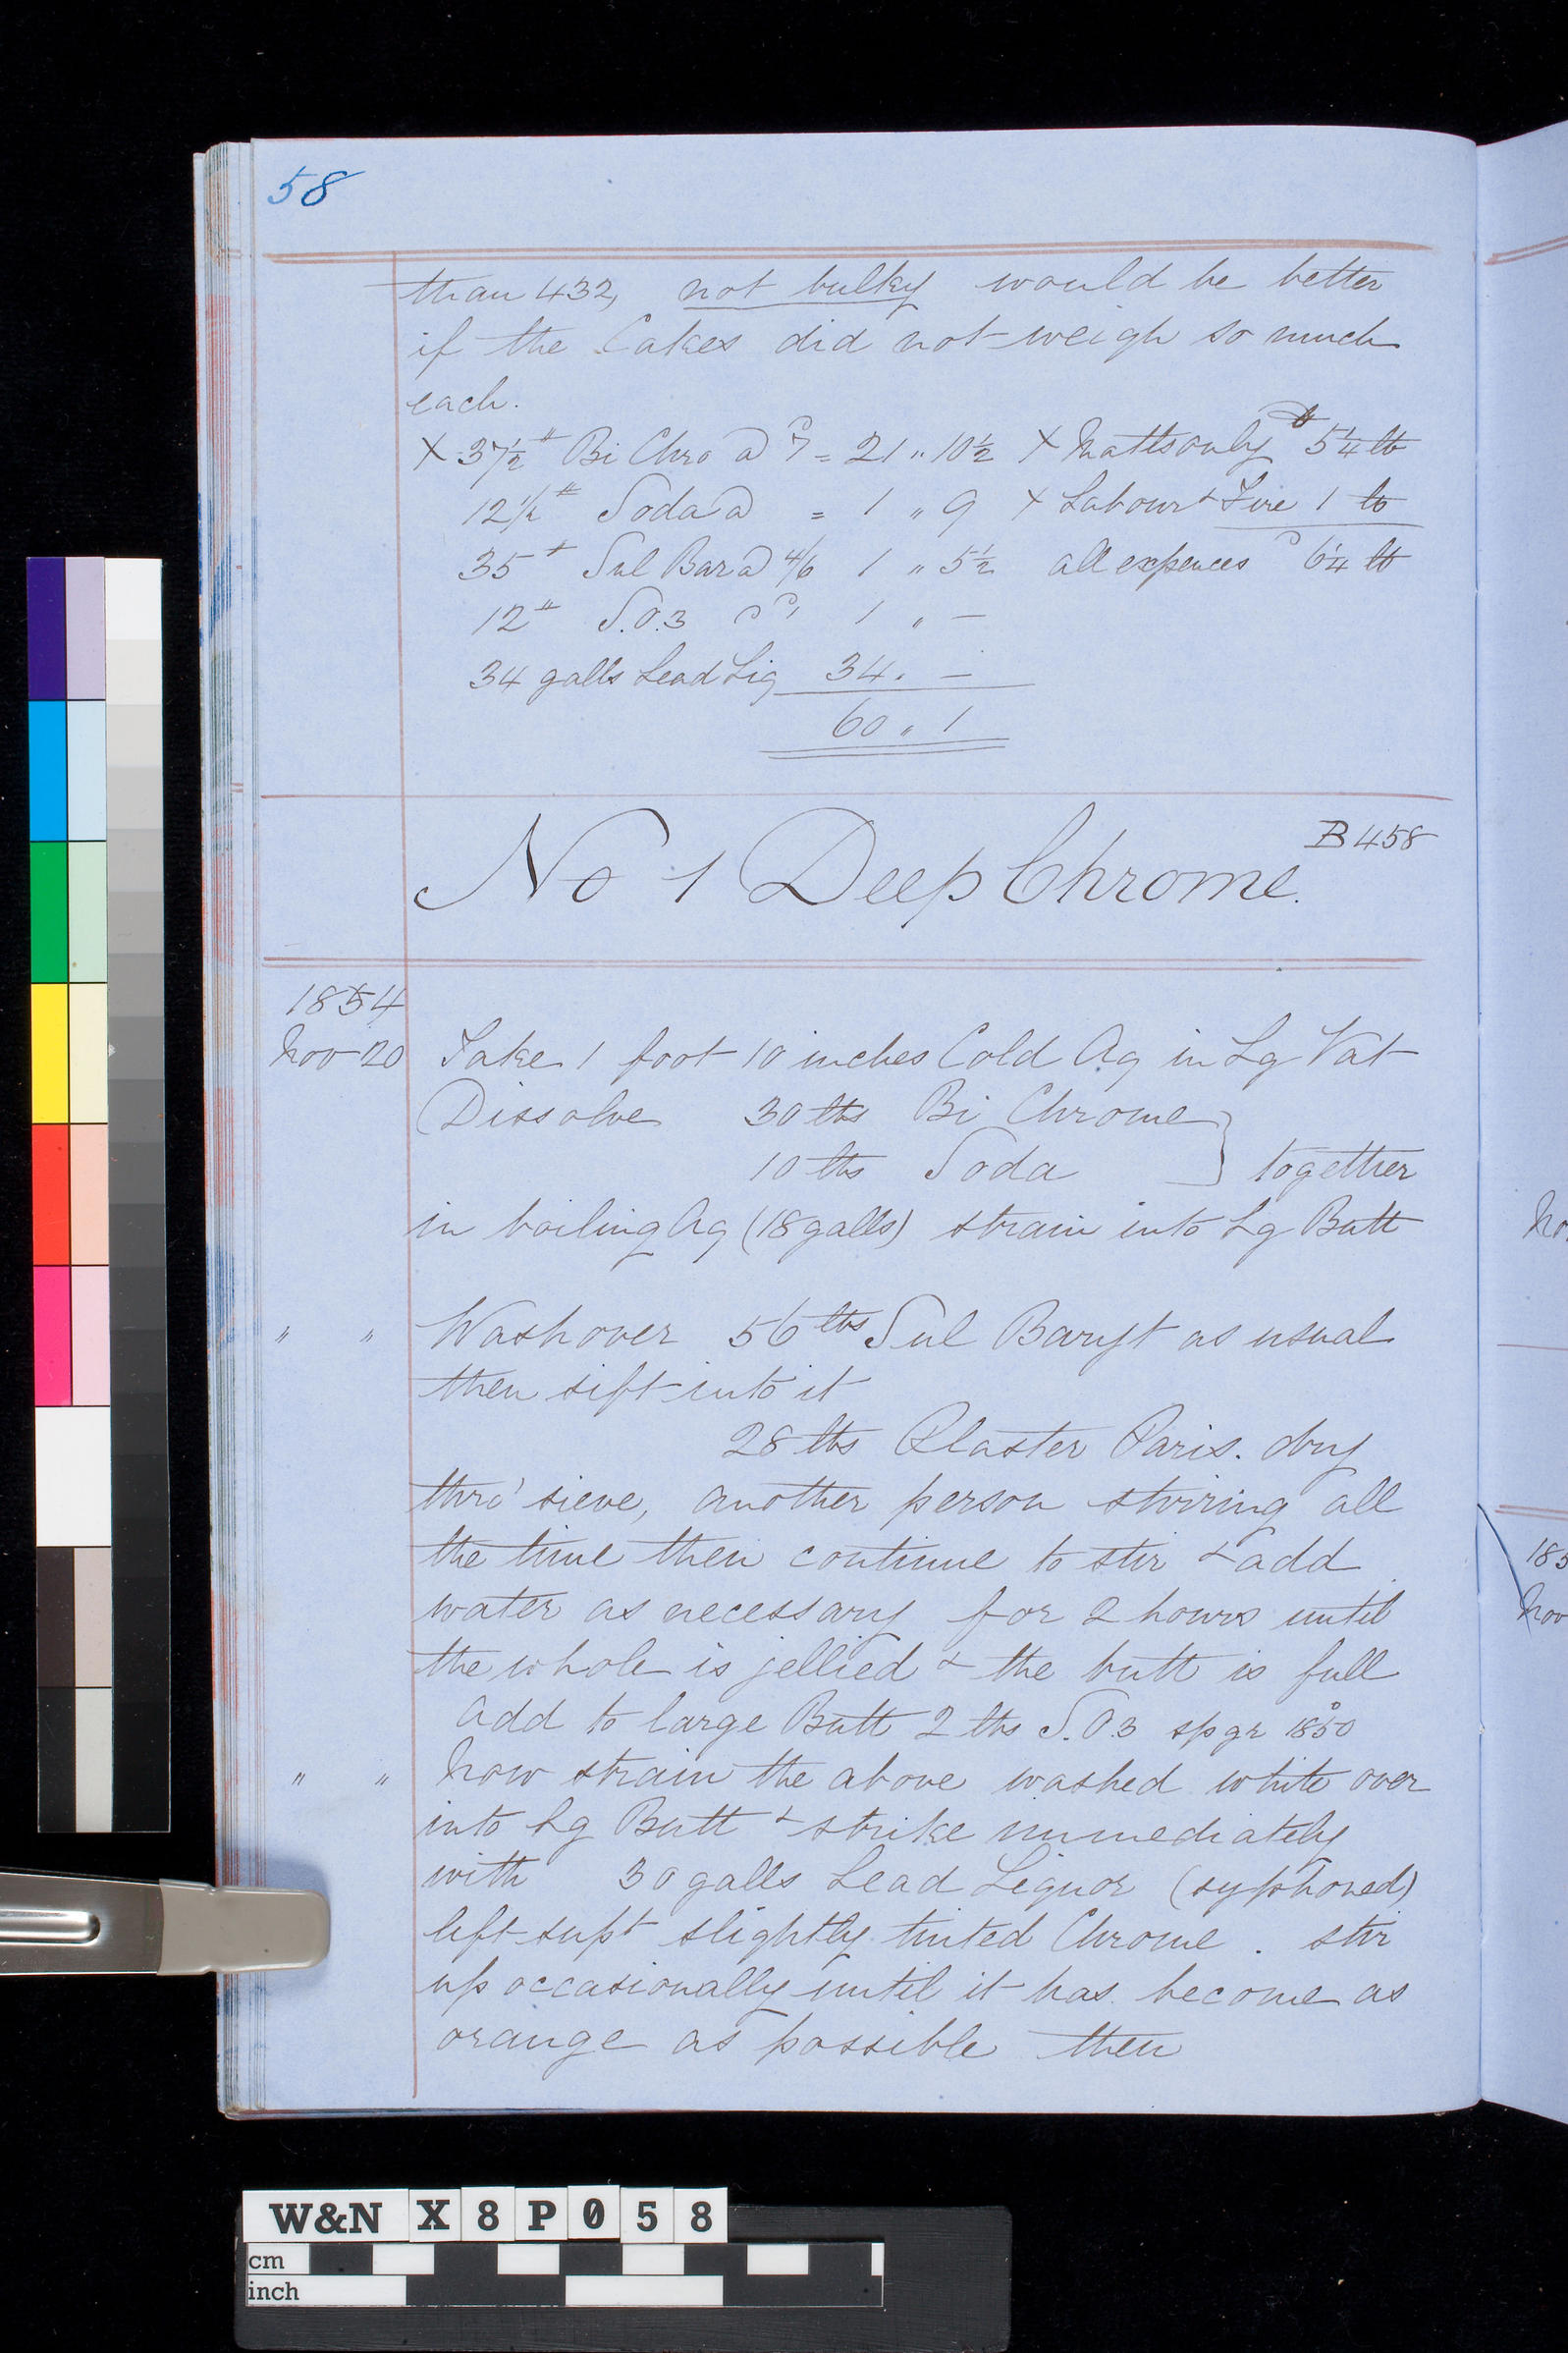 58
than 432, not bulky would be better
if the Cakes did not weigh so much
each.
X 37½ # Bi Chro @ 7 = 21 " 10½ X Matts only 5¼ lb
12½ # Soda @ = 1 " 9 X Labour & Fire 1 lb
35 # Sul Bar @ 4/6 1 " 5½ all expences 6¼ lb
12 # S.O.3 1 " —
34 galls Lead Liq 34 . —
60 " 1
B 458
No 1 Deep Chrome.
1854
Nov 20 Take 1 foot 10 inches Cold Aq in Lg Vat
Dissolve 30 lbs Bi Chrome
10 lbs Soda } together
in boiling Aq (18 galls) strain into Lg Butt
" " Wash over 56 lbs Sul Baryt as usual
then sift into it
28 lbs Plaster Paris. dry
thro' sieve, another person stirring all
the time then continue to stir & add
water as necessary for 2 hours until
the whole is jellied & the butt is full
add to large Butt 2 lbs S.O.3 sp gr 1850°
" " Now strain the above washed white over
into Lg Butt & strike immediately
with 30 galls Lead Liquor (syphoned)
left supt slightly tinted Chrome. stir
up occasionally until it has become as
orange as possible then
No
185
Nov
W&N X8P058
cm
inch